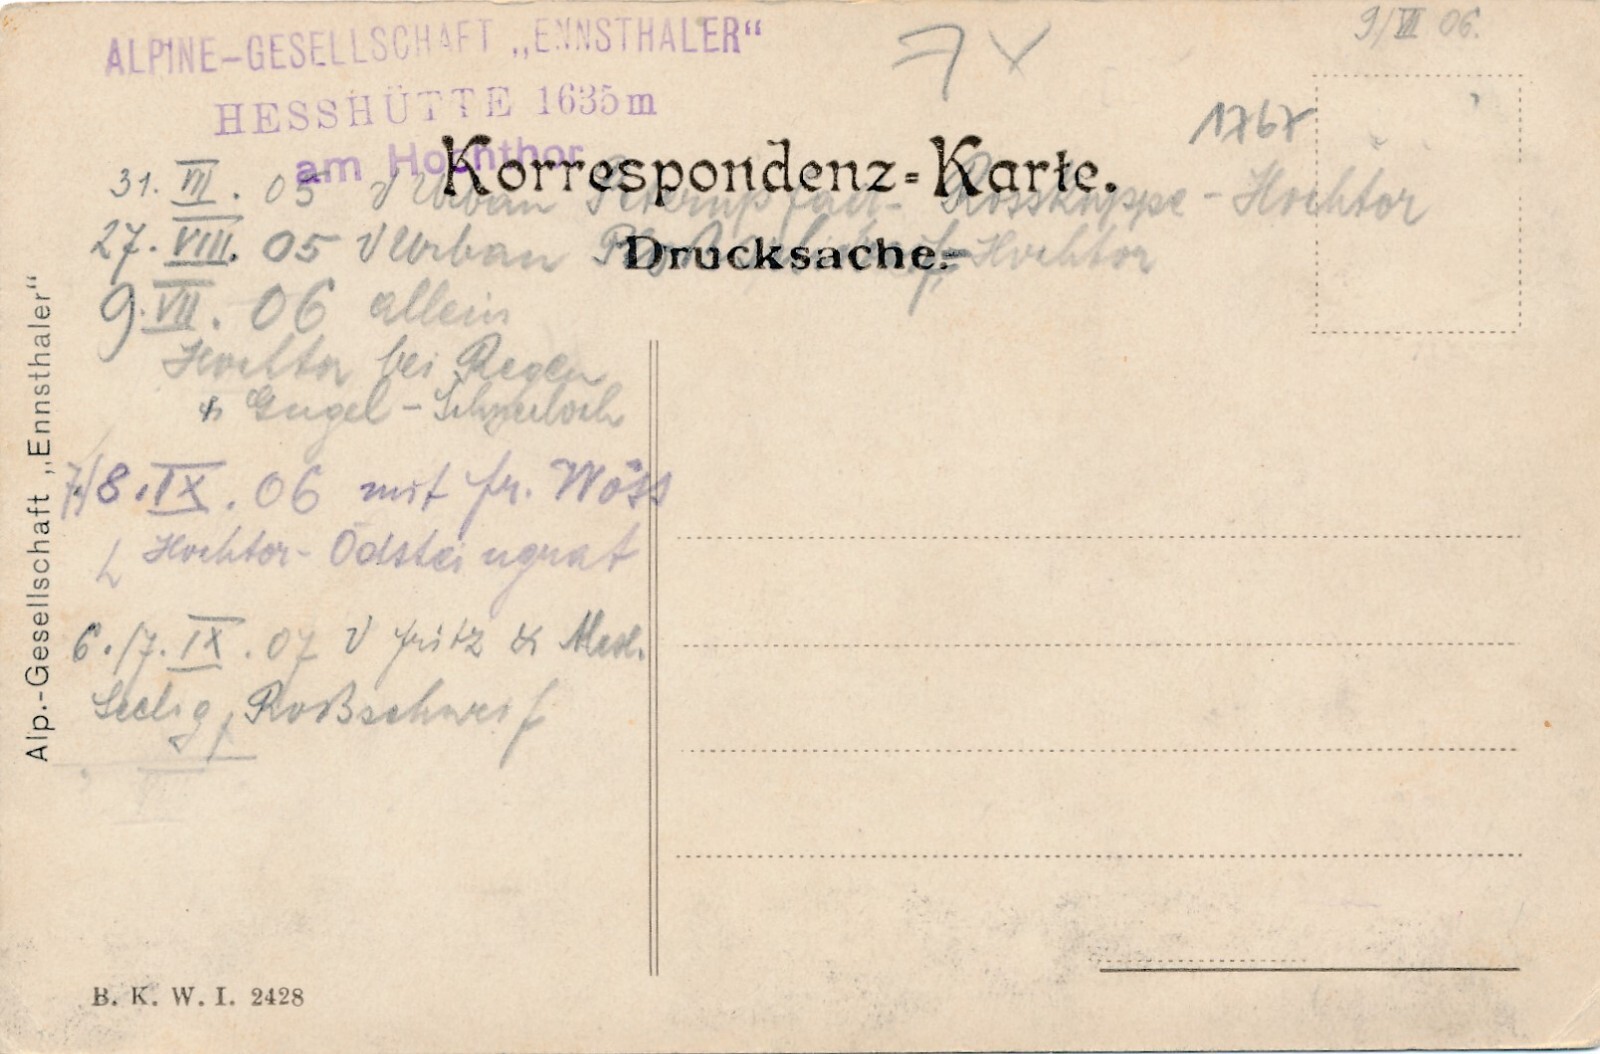 9/VII 06.
ALPINE-GESELLSCHAFT „ENNSTHALER“
HESSHÜTTE 1635 m
am Hochthor
1767
Korrespondenz=Karte.
Drucksache.
31. VII. 05 Urban Peternpfad- Rosskuppe - Hochtor
27. VIII. 05 Urban Hochtor
9. VII. 06 allein
Hochtor bei Regen
& Gugel - Schneeloch
7./8. IX. 06 mit Fr. Wöss
Hochtor- Ödsteingrat
6./7. IX. 07 Fritz &
Seelig, Roßschweif
Alp.-Gesellschaft „Ennsthaler“
B. K. W. I. 2428